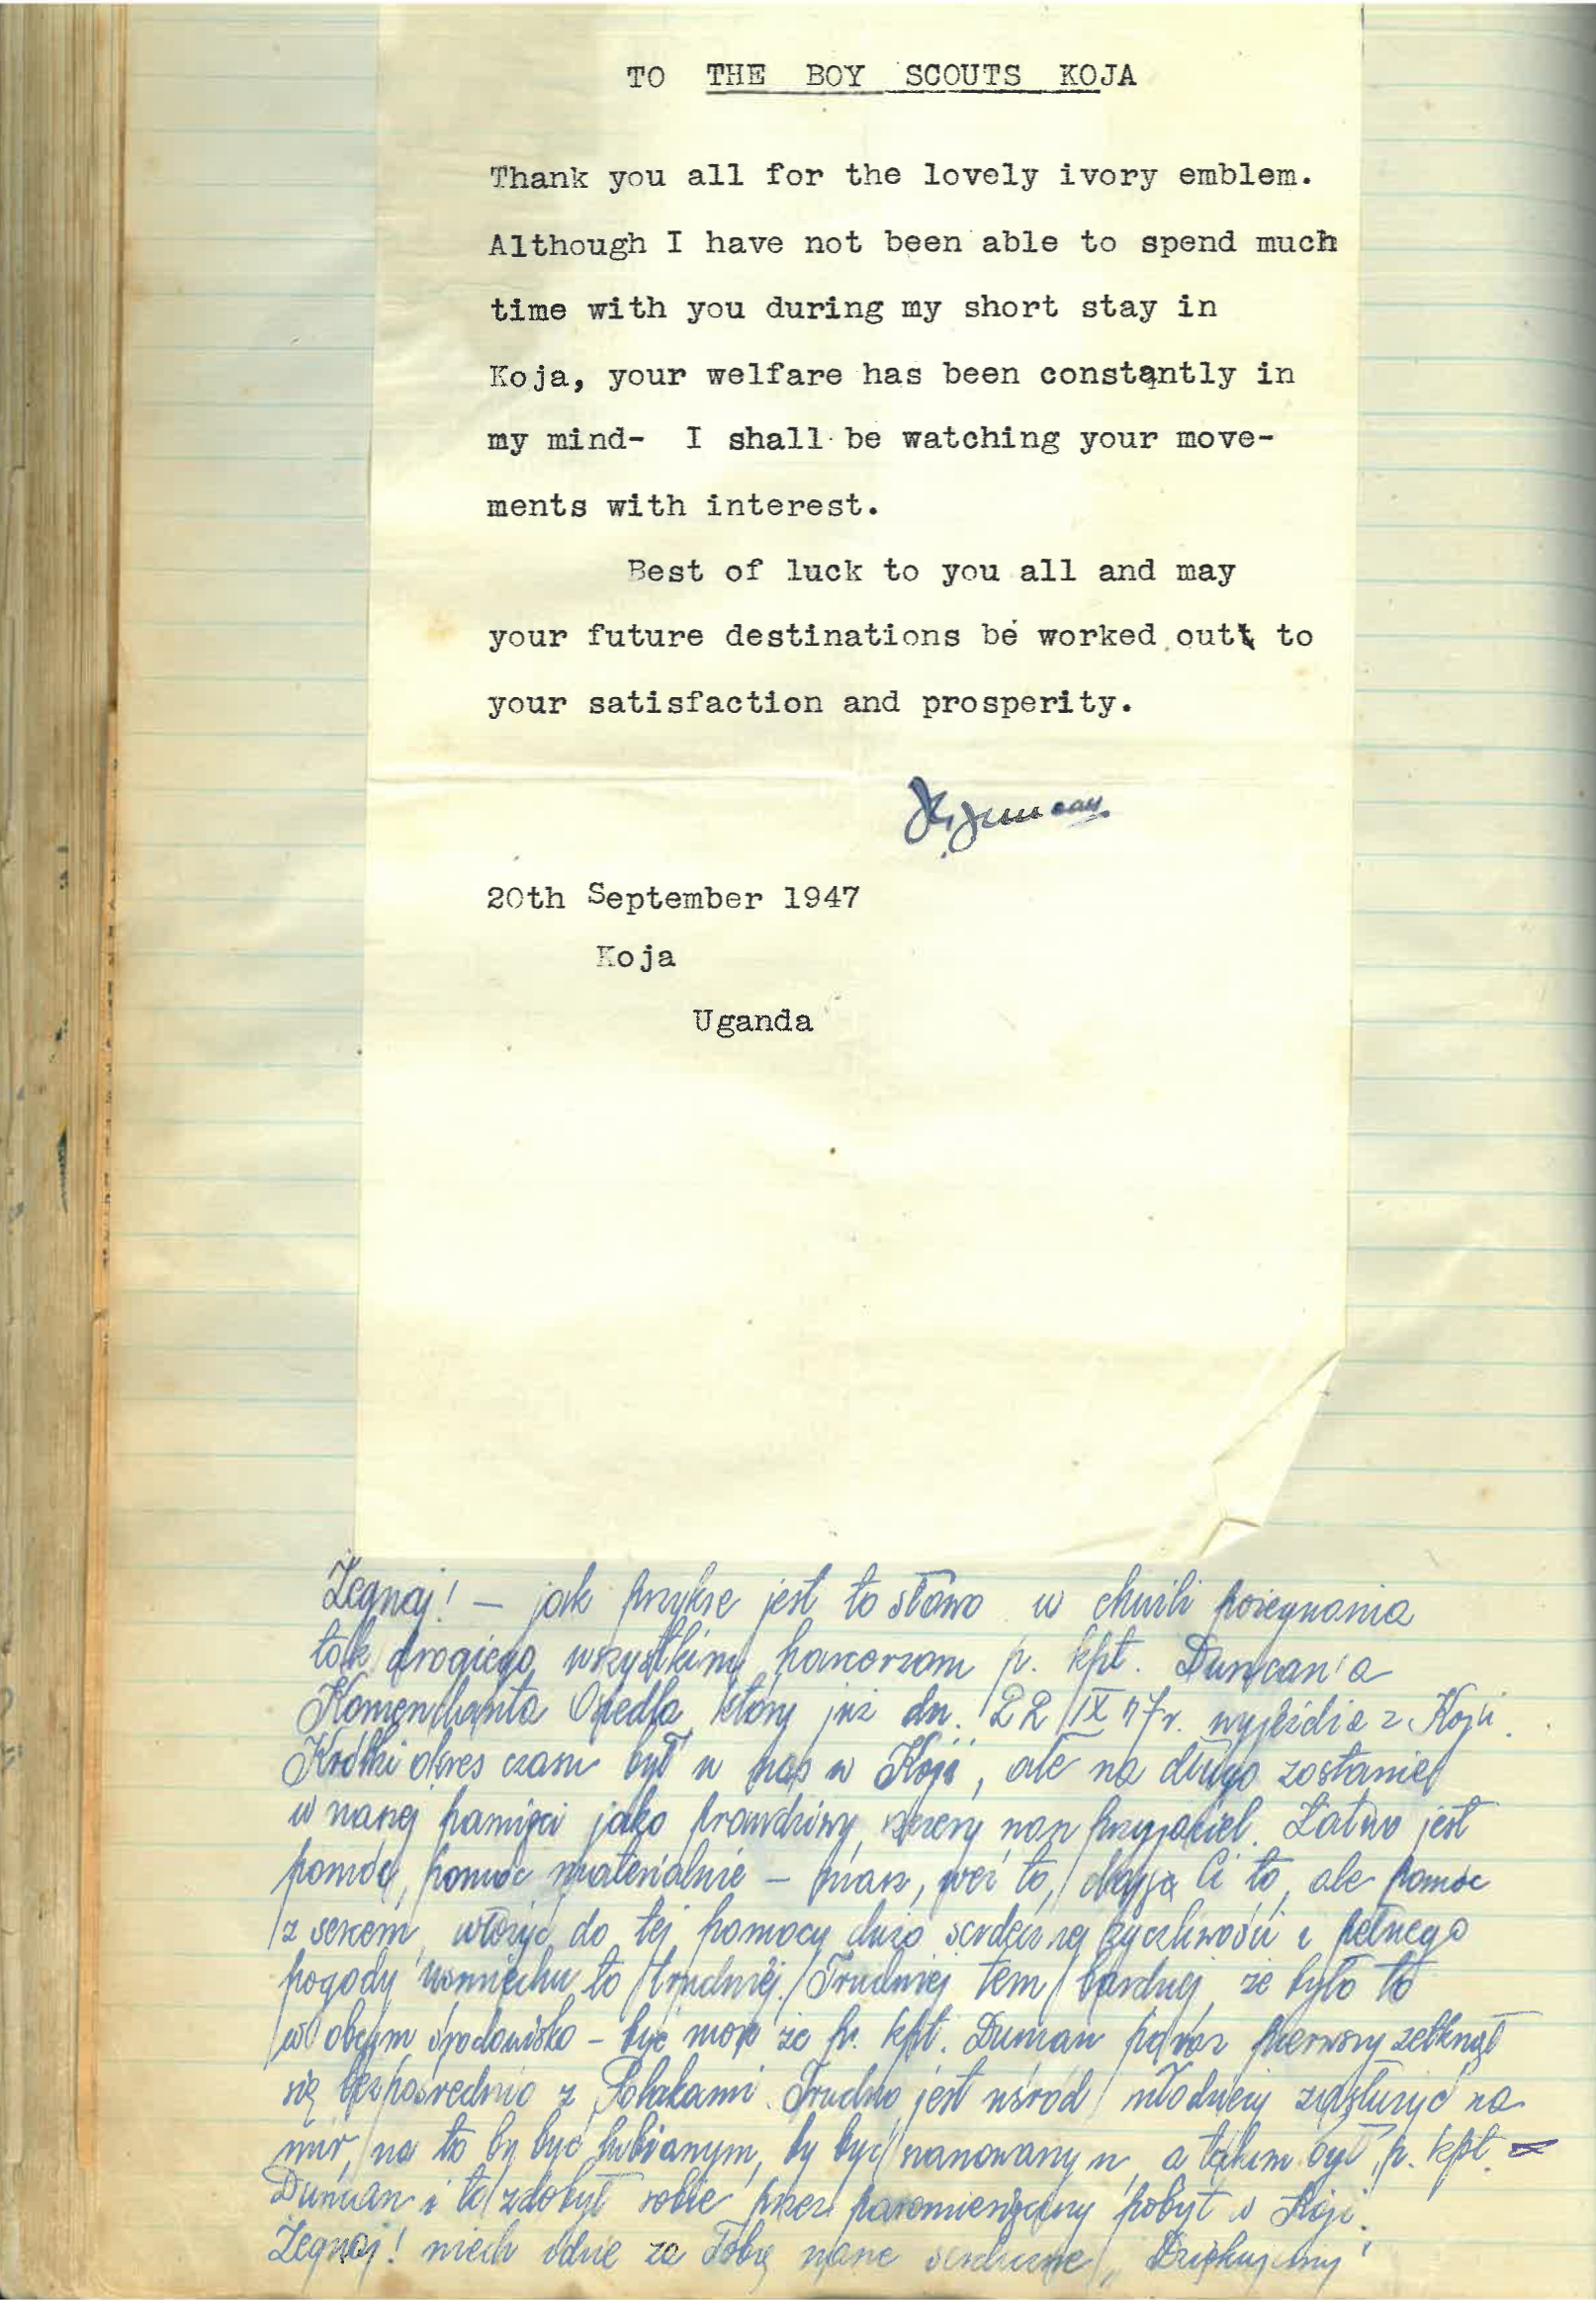 TO THE BOY SCOUTS KOJA
Thank you all for the lovely ivory emblem.
Although I have not been able to spend much
time with you during my short stay in
Koja, your welfare has been constantly in
my mind- I shall be watching your move-
ments with interest.
Best of luck to you all and may
your future destinations be worked out to
your satisfaction and prosperity.
Duncan.
20th September 1947
Koja
Uganda
Żegnaj! – jak przykre jest to słowo w chwili pożegnania
tak drogiego wszystkim harcerzom p. kpt. Duncan'a
Komendanta Osiedla, który już dn. 22/IX 47r. wyjeżdża z Koji.
Krótki okres czasu był u nas w Koji, ale na długo zostanie
w naszej pamięci jako prawdziwy, szczery nasz przyjaciel. Łatwo jest
pomóc, pomóc materialnie – masz, weź to, daję Ci to, ale pomóc
z sercem, włożyć do tej pomocy dużo serdecznej życzliwości i pełnego
pogody uśmiechu to trudniej. Trudniej tem bardziej, że było to
w obcym środowisku – być może że p. kpt. Duncan po raz pierwszy zetknął
się bezpośrednio z Polakami. Trudno jest wśród młodzieży zasłużyć na
mir, na to by być lubianym, by być szanowanym, a takim był p. kpt.
Duncan i to zdobył sobie przez paromiesięczny pobyt w Koji.
Żegnaj! niech idzie za Tobą nasze serdeczne „Dziękujemy"